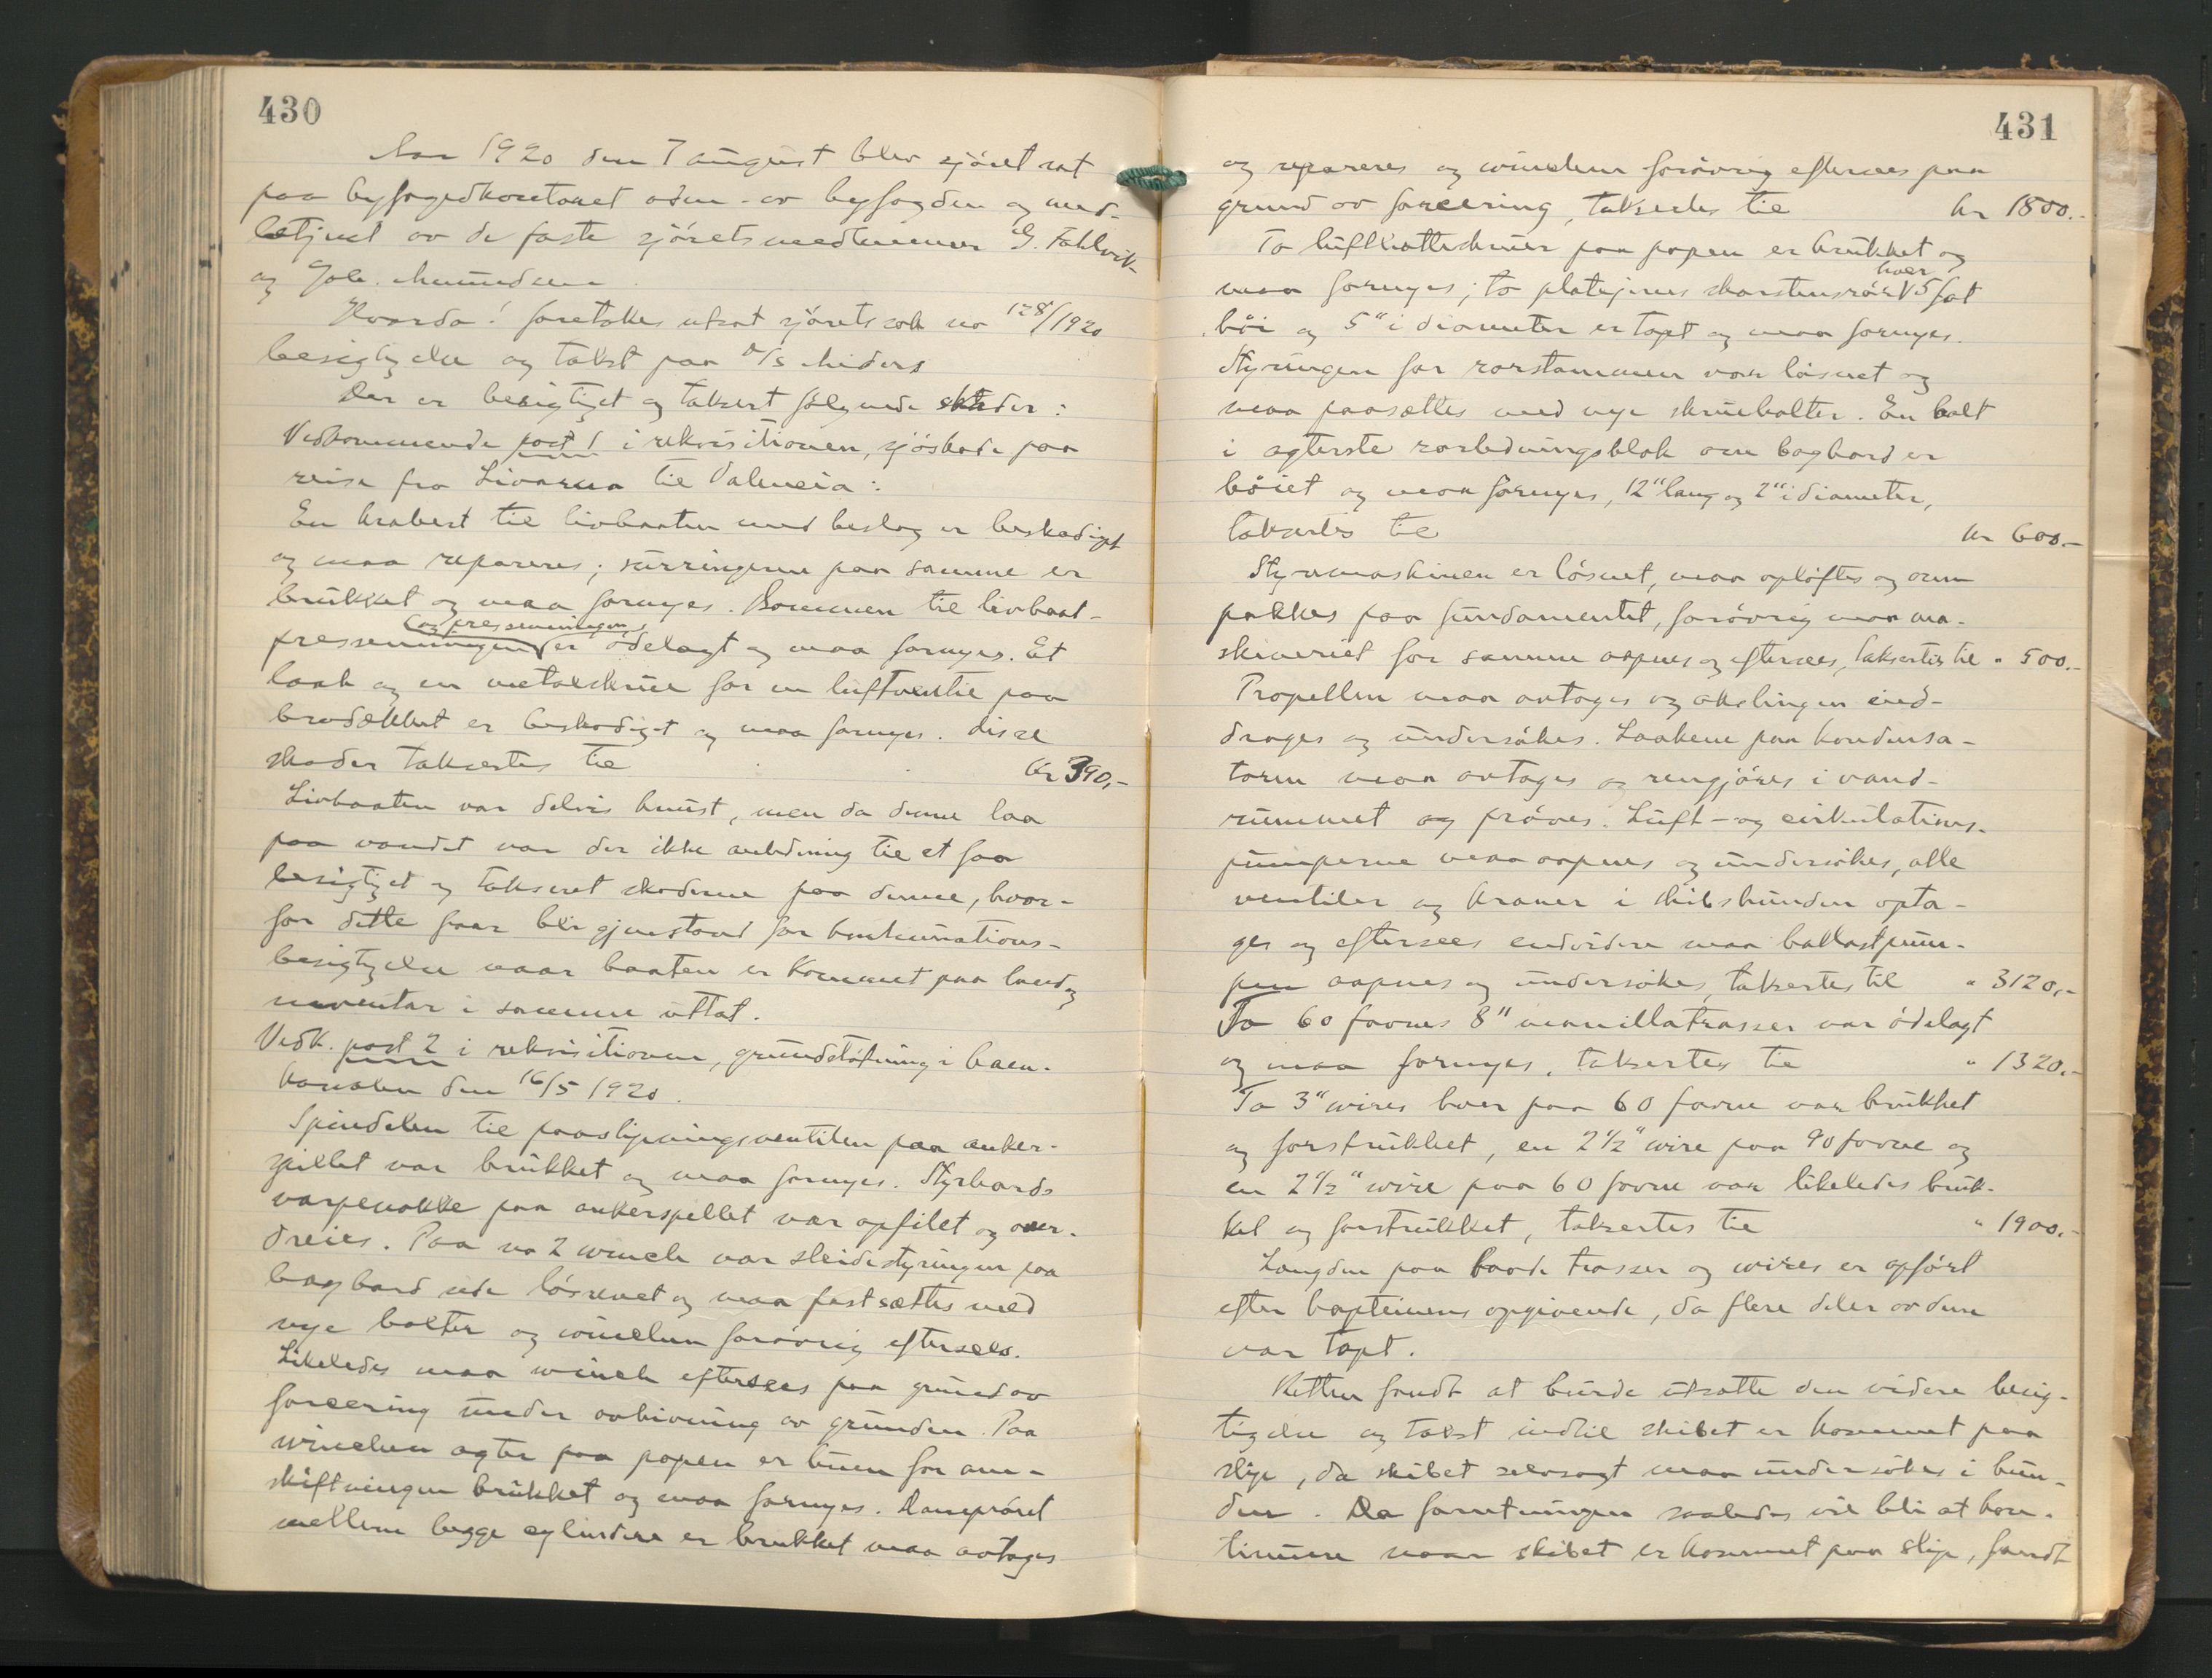 430
Aar 1920 den 7 august blev sjöret sat
paa byfogedkontoret adm. av byfogden og med-
betjent av de faste sjöretsmedlemmer G. Fahlvik
og Joh. Amundsen
Hvorda! foretokes utsat sjöretssak no 128/1920
besigtigelse og takst paa D/S Miders
Der er besigtiget og taksert fölgende skader:
Vedkommende post 1 i rekvisitionen, sjöskade paa
reise fra Livorno til Valencia:
En krabest til livbaaten med beslag er beskadiget
og maa repareres; surringerne paa samme er
brukket og maa fornyes. Bommen til livbaat-
og pressenningen
pressenningen er ödelagt og maa fornyes. Et
laak og en metalskrue for en luftventil paa
brodækket er beskadiget og maa fornyes. Disse
skader taksertes til kr 390,-
Livbaaten var delvis knust, men da denne laa
paa vandet var der ikke anledning til et faa
besigtiget og taksert skaderne paa denne, hvor-
for dette faar bli gjenstand for kontinuations-
besigtigelse naar baaten er kommet paa land og
inventar i samme uttat.
Vedk. post 2 i rekvisitionen, grundstötning i Caen-
kanalen den 16/5 1920.
Spindelen til paaslipningsventilen paa anker-
spillet var brukket og maa fornyes. Styrbords
varpenokke paa ankerspillet var opfilet og over-
dreies. Paa no 2 winch var sleidestyringen paa
bagbord side lösnet og maa fastsættes med
nye bolter og winchen forövrig eftersees.
Likeledes maa winch eftersees paa grund av
forcering under avhivning av grunden. Paa
winchen agter paa popen er tinen for om-
skiftningen brukket og maa fornyes. Dampröret
mellem begge cylindere er brukket maa avtages
431
og repareres og winchen forövrig eftersees paa
grund av forcering, taksertes til kr 1800.-
To lufthætteskruer paa popen er brukket og
hver
maa fornyes; to platejerns skorstensrör 5 fot
höi og 5" i diameter er tapt og maa fornyes.
Styringen for rorstammen var lösnet og
maa paasættes med nye skruebolter. En bolt
i agterste rorledningsblok om bagbord er
böiet og maa fornyes, 12" lang og 2" i diameter,
taksertes til kr 600.-
Styremaskinen er lösnet, maa oplöftes og om-
pakkes paa fundamentet, forövrig maa ma-
skineriet for samme aapnes og eftersees, taksertes til " 500.-
Propellen maa avtages og akslingen ind-
drages og undersökes. Laakene paa kondensa-
toren maa avtages og rengjöres i vand-
rummet og pröves. Luft- og cirkulations-
pumperne maa aapnes og undersökes, alle
ventiler og kraner i skibsbunden opta-
ges og eftersees endvidere maa ballastpum-
pen aapnes og undersökes, taksertes til " 3120,-
To 60 favnes 8" manillatrosser var ödelagt
og maa fornyes, taksertes til " 1320.-
To 3" wires hver paa 60 favne var brukket
og forstrukket, en 2 1/2" wire paa 90 favne og
en 2 1/2" wire paa 60 favne var likeledes bruk-
ket og forstrukket, taksertes til " 1900.-
Længden paa baade trosser og wires er opfört
efter kapteinens opgivende, da flere deler av dem
var tapt.
Retten fandt at burde utsætte den videre besig-
tigelse og takst indtil skibet er kommet paa
slip, da skibet selvsagt maa undersökes i bun-
den. Da forretningen saaledes vil bli at kon-
tinuere naar skibet er kommet paa slip, fandt